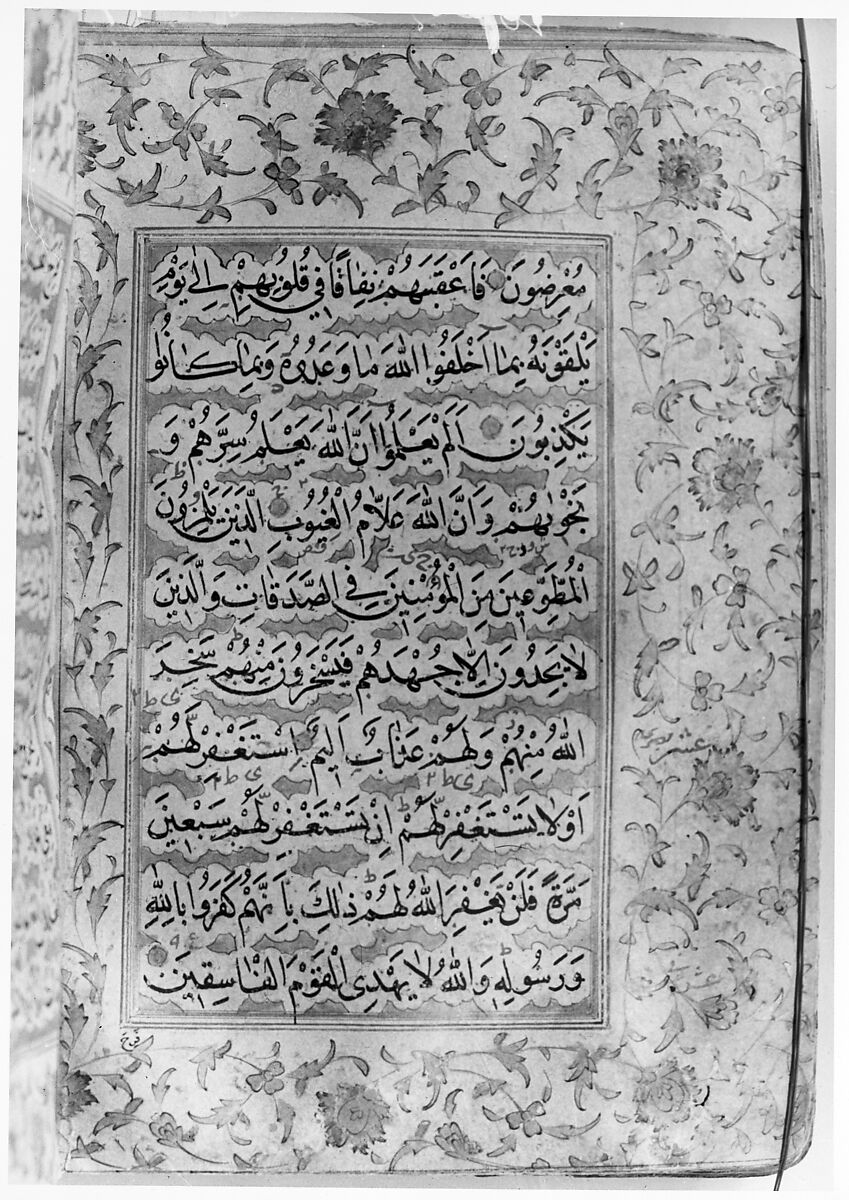 مُعْرِضُونَ فَاَعْقَبَهُمْ نِفَاقًا فِي قُلُوبِهِمْ اِلٰى يَوْمِ
يَلْقَوْنَهُ بِمَا اَخْلَفُوا اللّٰهَ مَا وَعَدُوهُ وَبِمَا كَانُوا
يَكْذِبُونَ اَلَمْ يَعْلَمُوا اَنَّ اللّٰهَ يَعْلَمُ سِرَّهُمْ وَ
نَجْوٰىهُمْ وَاَنَّ اللّٰهَ عَلَّامُ الْغُيُوبِ اَلَّذِينَ يَلْمِزُونَ
الْمُطَّوِّعِينَ مِنَ الْمُؤْمِنِينَ فِي الصَّدَقَاتِ وَالَّذِينَ
لَا يَجِدُونَ اِلَّا جُهْدَهُمْ فَيَسْخَرُونَ مِنْهُمْ سَخِرَ
اللّٰهُ مِنْهُمْ وَلَهُمْ عَذَابٌ اَلِيمٌ اِسْتَغْفِرْ لَهُمْ
اَوْ لَا تَسْتَغْفِرْ لَهُمْ اِنْ تَسْتَغْفِرْ لَهُمْ سَبْعِينَ
مَرَّةً فَلَنْ يَغْفِرَ اللّٰهُ لَهُمْ ذٰلِكَ بِاَنَّهُمْ كَفَرُوا بِاللّٰهِ
وَرَسُولِهِ وَاللّٰهُ لَا يَهْدِى الْقَوْمَ الْفَاسِقِينَ